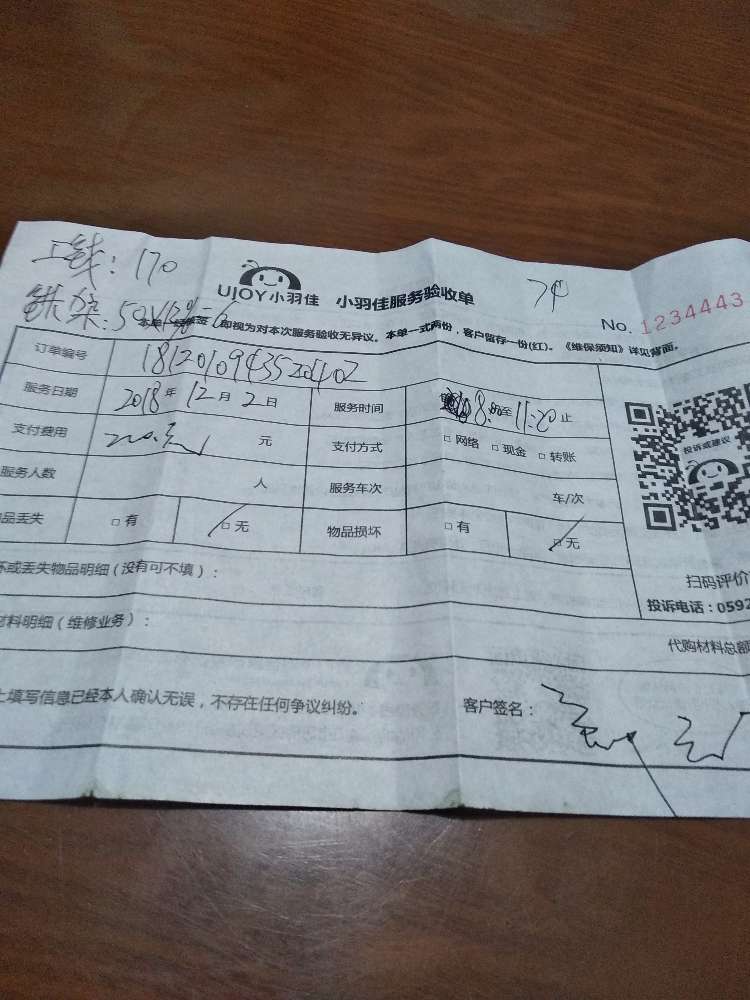 工钱：170
UJOY小羽佳 小羽佳服务验收单
No. 1234443
即视为对本次服务验收无异议。本单一式两份，客户留存一份(红)。《维保须知》详见背面。
订单编号
服务日期 2018年12月2日 服务时间 8:00至11:20止
支付费用 元 支付方式 □网络 □现金 □转账
服务人数 人 服务车次 车/次
品丢失 □有 □无 物品损坏 □有 □无
投诉或建议
扫码评价
投诉电话：0592
坏或丢失物品明细（没有可不填）：
材料明细（维修业务）：
代购材料总额
上填写信息已经本人确认无误，不存在任何争议纠纷。
客户签名：